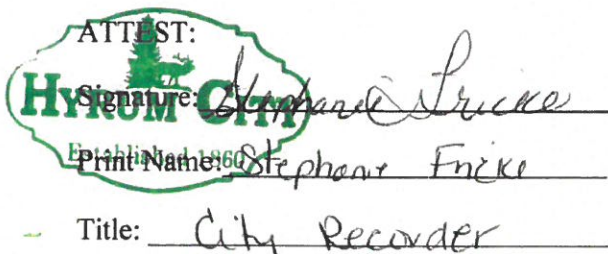 ATTEST:
HYRUM CITY
Signature: Stephanie Fricke
Established 1860
Print Name: Stephanie Fricke
Title: City Recorder